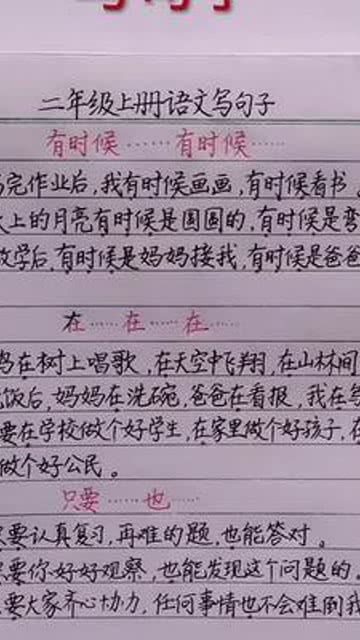 二年级上册语文写句子
有时候……有时候……
完作业后,我有时候画画,有时候看书
上的月亮有时候是圆圆的,有时候是弯
学后,有时候是妈妈接我,有时候是爸爸
在……在……在……
在树上唱歌,在天空中飞翔,在山林间
饭后,妈妈在洗碗,爸爸在看报,我在
要在学校做个好学生,在家里做个好孩子,在
做个好公民。
只要……也……
要认真复习,再难的题,也能答对。
要你好好观察,也能发现这个问题的,
要大家齐心协力,任何事情也不会难倒我